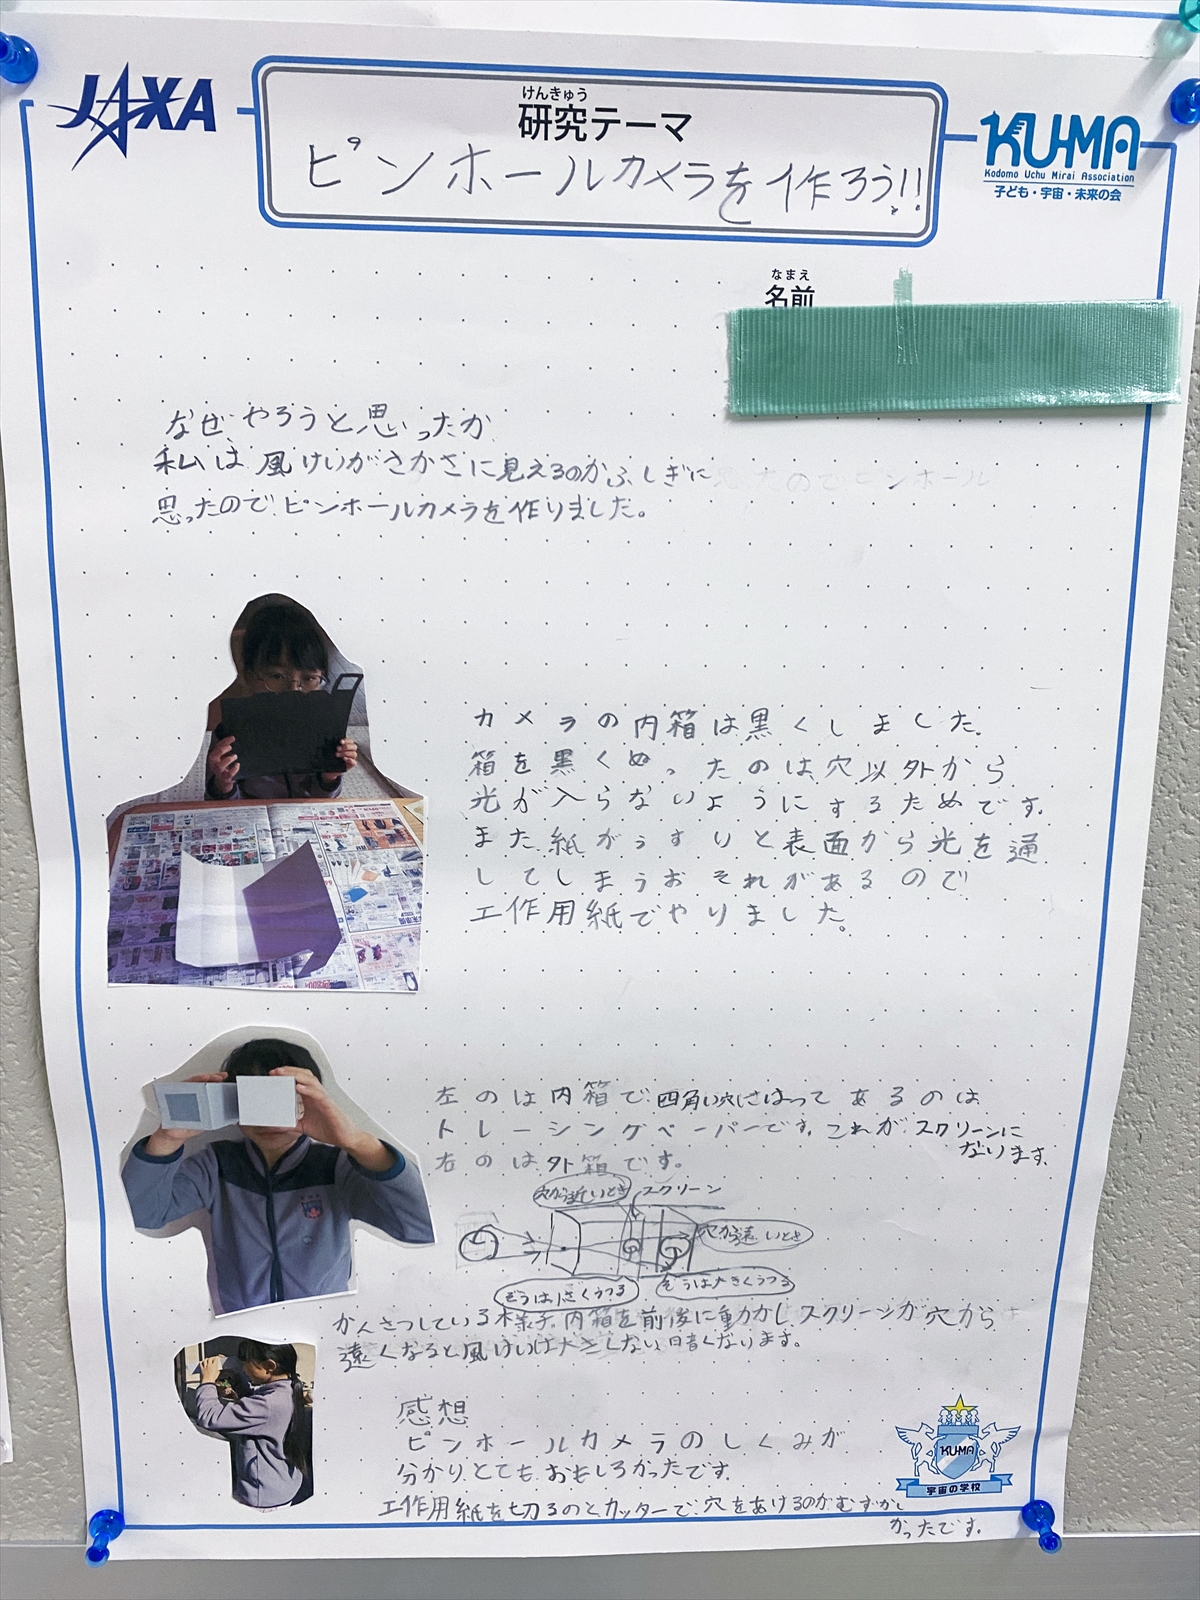 JAXA
けんきゅう
研究テーマ
ピンホールカメラを作ろう!!
KU-MA
Kodomo Uchu Mirai Association
子ども・宇宙・未来の会
なまえ
名前
なぜ、やろうと思ったか
私は風けいがさかさに見えるのがふしぎに
思ったのでピンホールカメラを作りました。
カメラの内箱は黒くしました。
箱を黒くぬったのは穴以外から
光が入らないようにするためです。
また紙がうすいと表面から光を通
してしまうおそれがあるので
工作用紙でやりました。
左のは内箱で四角い穴にはってあるのは
トレーシングペーパーです。これがスクリーンに
なります。
右のは外箱です。
穴から近いとき
スクリーン
穴から遠いとき
ぞうは小さくうつる
ぞうは大きくうつる
かんさつしている様子、内箱を前後に動かしスクリーンが穴から
遠くなると風けいは大きしない暗くないます。
感想
ピンホールカメラのしくみが
分かりとてもおもしろかったです。
工作用紙を切るのとカッターで穴をあけるのがむずかし
かったです。
KU-MA
宇宙の学校